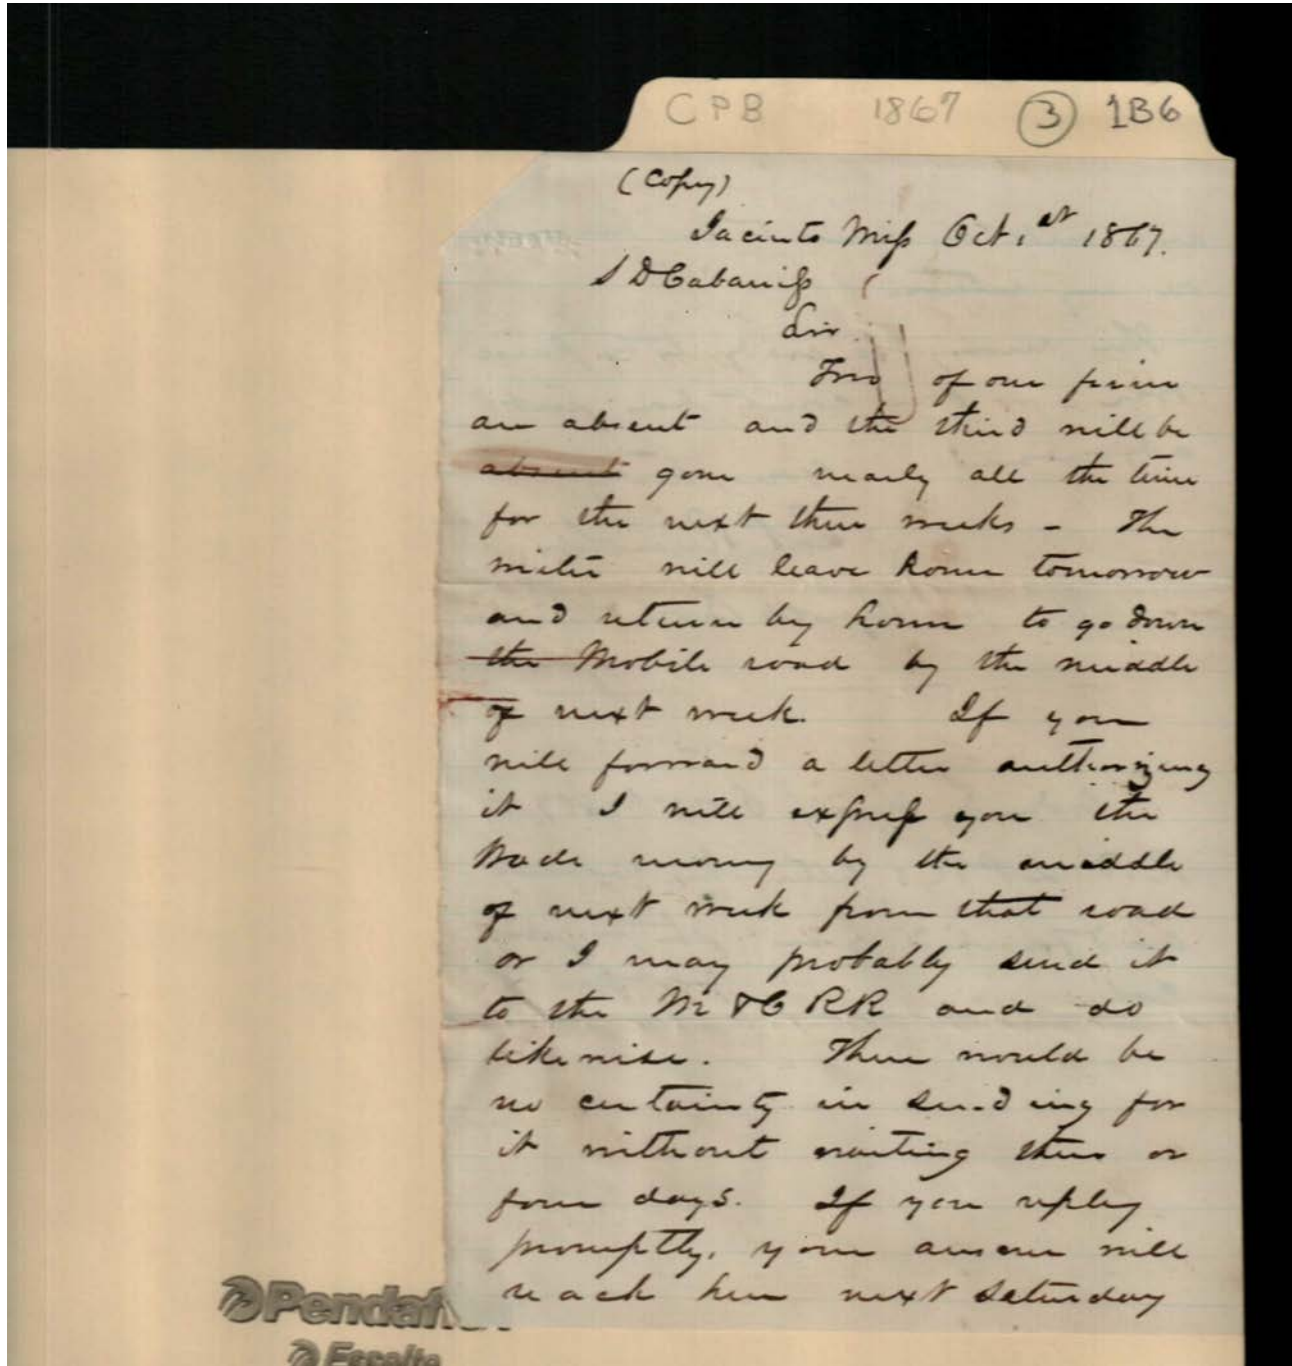 CPB 1867 3 1B6
(Copy)
Jacinto Miss Oct. 1st 1867.
S D Cabaniss
Sir
Two of our firm
are absent and the third will be
absent gone nearly all the time
for the next three weeks - The
writer will leave home tomorrow
and return by home to go down
the Mobile road by the middle
of next week. If you
will forward a letter authorizing
it I will express you the
Wade money by the middle
of next week from that road
or I may probably send it
to the M & C RR and do
likewise. There would be
no certainty in sending for
it without waiting three or
four days. If you reply
promptly, your answer will
reach here next Saturday
Pendaf
Esselte